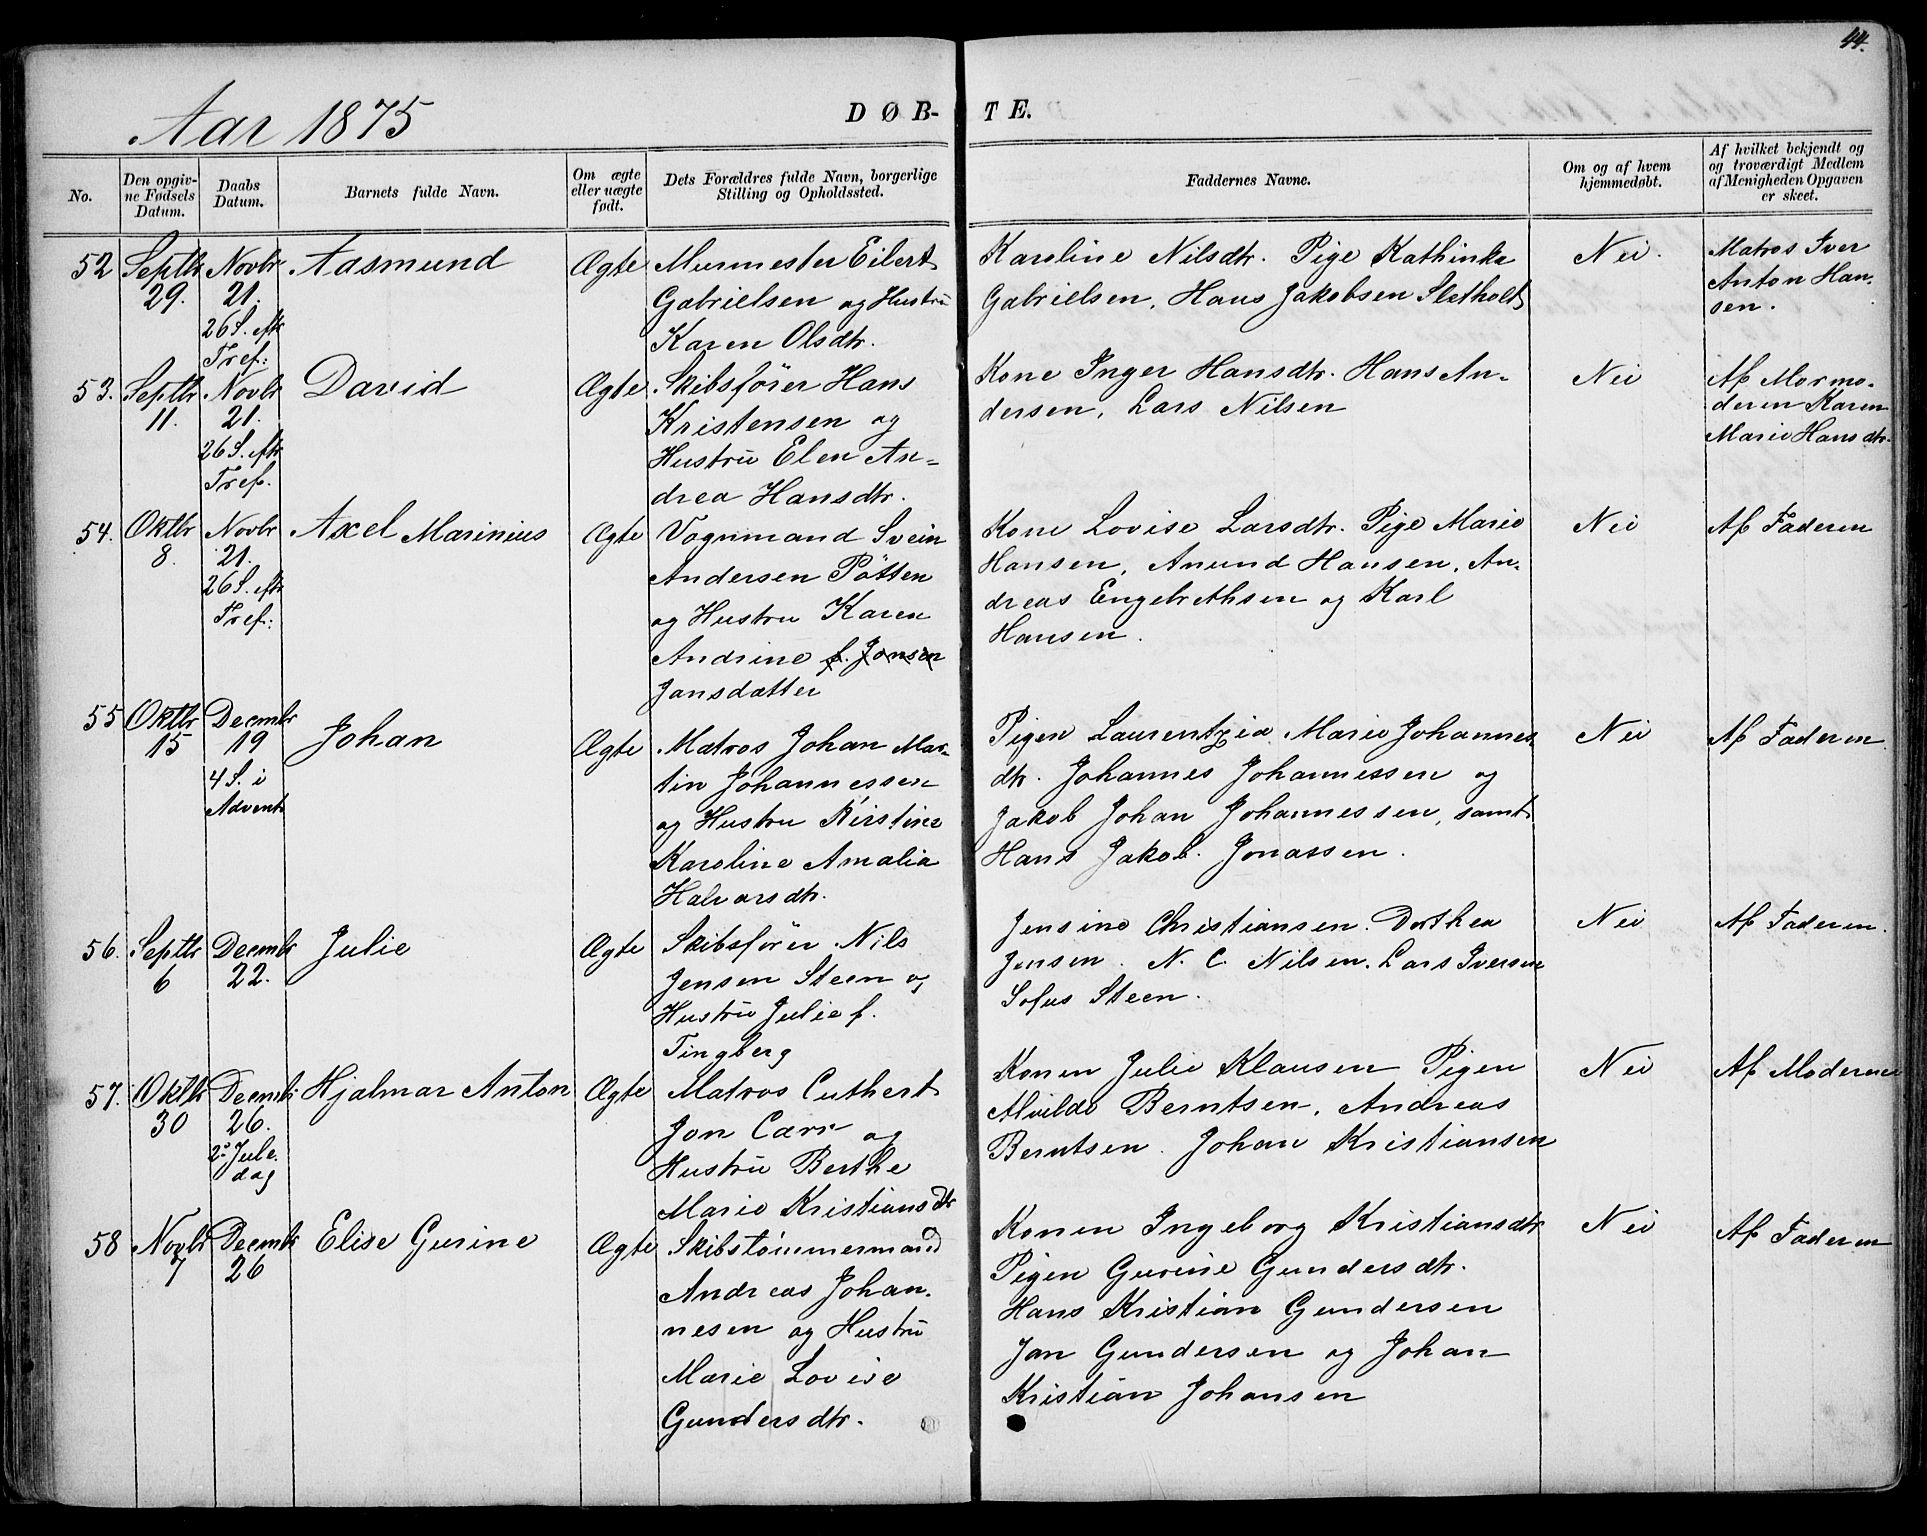 44.
Aar 1875
DØB-TE.
No.
Den opgiv-
ne Fødsels
Datum.
Daabs
Datum.
Barnets fulde Navn.
Om ægte
eller uægte
født.
Dets Forældres fulde Navn, borgerlige
Stilling og Opholdssted.
Faddernes Navne.
Om og af hvem
hjemmedøbt.
Af hvilket bekjendt og
og troværdigt Medlem
af Menigheden Opgaven
er skeet.
52
Septbr
29.
Novbr
21.
26 S. eftr
Tref:
Aasmund
Ægte
Murmester Eilert
Gabrielsen og Hustru
Karen Olsdtr.
Karoline Nilsdtr. Pige Kathinka
Gabrielsen, Hans Jakobsen Sletholt
Nei.
Matros Iver
Anton Han-
sen.
53.
Septbr
11.
Novbr
21.
26 S. eftr
Tref.
David
Ægte
Skibsfører Hans
Kristensen og
Hustru Elen An-
drea Hansdtr.
Kone Inger Hansdtr. Hans An-
dersen, Lars Nilsen
Nei
Af Mormo-
deren Karen
Marie Hansdtr.
54.
Oktbr
8.
Novbr
21.
26 S. eftr
Tref:
Axel Marinius
Ægte
Vognmand Svein
Andersen Pøtten
og Hustru Karen
Andrine f. Jonsen
Jansdatter
Kone Lovise Larsdtr. Pige Marie
Hansen, Anund Hansen, An-
dreas Engebrethsen og Karl
Hansen.
Nei
Af Faderen
55
Oktbr
15
Decmbr
19
4 S. i
Advent
Johan
Ægte
Matros Johan Mar-
tin Johannessen
og Hustru Kirstine
Karoline Amalia
Halvorsdtr.
Pigen Laurentzia Marie Johannes-
dtr. Johannes Johannessen og
Jakob Johan Johannessen, samt
Hans Jakob Jonassen.
Nei
Af Faderen
56.
Septbr
6
Decmbr
22.
Julie
Ægte
Skibsfører Nils
Jensen Steen og
Hustru Julie f.
Tingberg
Jensine Christiansen. Dorthea
Jensen. N. C. Nilsen. Lars Iversen
Sofus Steen.
Nei
Af Faderen.
57.
Oktbr
30
Decmbr
26.
2. Jule
dag
Hjalmar Anton
Ægte
Matros Cuthert
Jon Carr og
Hustru Berthe
Marie Kristiansdtr
Konen Julie Klausen Pigen
Alvilde Berntsen, Andreas
Berntsen. Johan Kristiansen
Nei
Af Moderen
58
Novbr
7
Decmbr
26
Elise Gurine
Ægte
Skibstømmermand
Andreas Johan-
nesen og Hustru
Marie Lovise
Gundersdtr.
Konen Ingeborg Kristiansdtr
Pigen Gurine Gundersdtr.
Hans Kristian Gundersen
Jan Gundersen og Johan
Kristian Johansen
Nei
Af Faderen